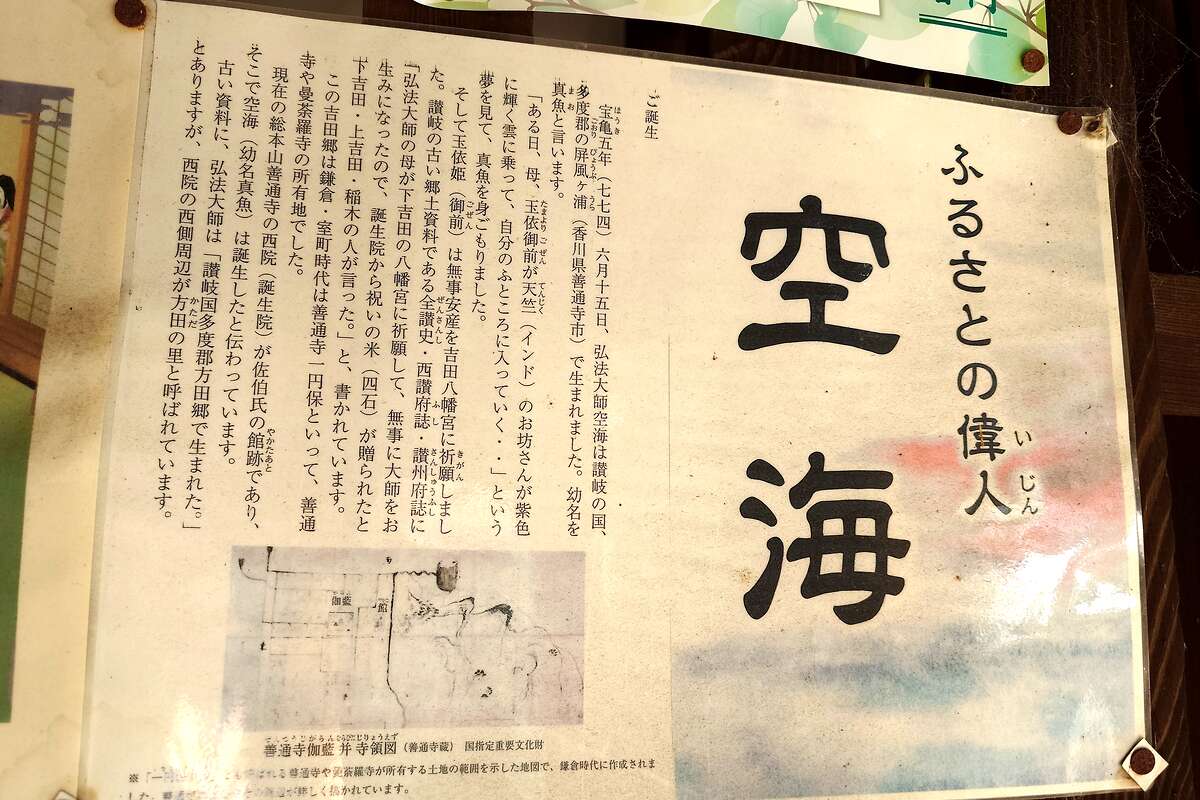 ふるさとの偉人
いじん
空海
ご誕生
宝亀五年（七七四）六月十五日、弘法大師空海は讃岐の国、
ほうき
多度郡の屏風ヶ浦（香川県善通寺市）で生まれました。幼名を
ごおり びょうぶ うら
真魚と言います。
まお
「ある日、母、玉依御前が天竺（インド）のお坊さんが紫色
たまよりごぜん てんじく
に輝く雲に乗って、自分のふところに入っていく・・」という
夢を見て、真魚を身ごもりました。
そして玉依姫（御前）は無事安産を吉田八幡宮に祈願しまし
ごぜん きがん
た。讃岐の古い郷土資料である全讃史・西讃府誌・讃州府誌に
ぜんさんし ふし さんしゅうふし
「弘法大師の母が下吉田の八幡宮に祈願して、無事に大師をお
生みになったので、誕生院から祝いの米（四石）が贈られたと
下吉田・上吉田・稲木の人が言った。」と、書かれています。
この吉田郷は鎌倉・室町時代は善通寺一円保といって、善通
寺や曼荼羅寺の所有地でした。
現在の総本山善通寺の西院（誕生院）が佐伯氏の館跡であり、
やかたあと
そこで空海（幼名真魚）は誕生したと伝わっています。
古い資料に、弘法大師は「讃岐国多度郡方田郷で生まれた。」
とありますが、西院の西側周辺が方田の里と呼ばれています。
かただ
伽藍
館
善通寺伽藍并寺領図（善通寺蔵） 国指定重要文化財
善通寺や曼荼羅寺が所有する土地の範囲を示した地図で、鎌倉時代に作成されま
した。
描かれています。